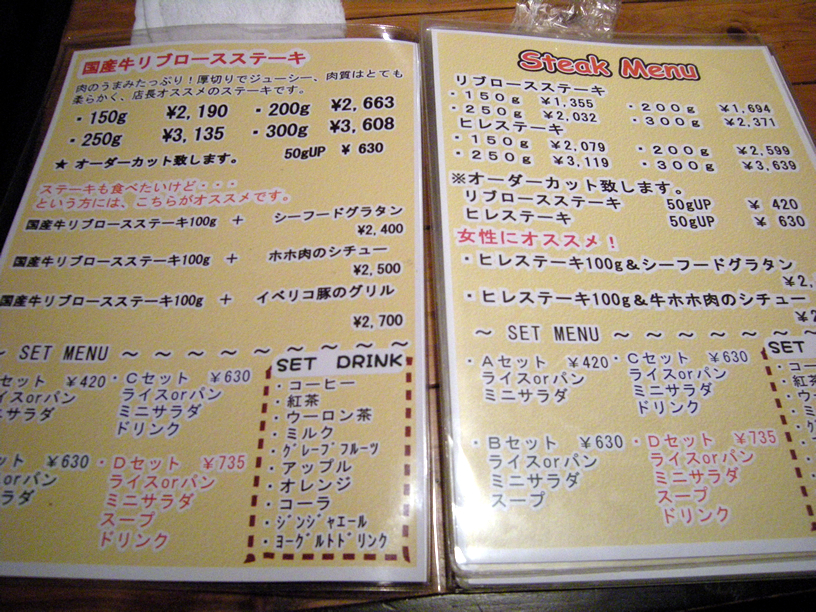 国産牛リブロースステーキ
肉のうまみたっぷり！厚切りでジューシー、肉質はとても
柔らかく、店長オススメのステーキです。
・150g ¥2,190 ・200g ¥2,663
・250g ¥3,135 ・300g ¥3,608
★ オーダーカット致します。 50gUP ¥ 630
ステーキも食べたいけど・・・
という方には、こちらがオススメです。
国産牛リブロースステーキ100g ＋ シーフードグラタン
¥2,400
国産牛リブロースステーキ100g ＋ ホホ肉のシチュー
¥2,500
国産牛リブロースステーキ100g ＋ イベリコ豚のグリル
¥2,700
～ SET MENU ～ ～ ～ ～ ～ ～ ～ ～
セット ￥420 ・Ｃセット ￥630
イスorパン ライスorパン
ミニサラダ ミニサラダ
ドリンク
ット ￥630 ・Ｄセット ￥735
スorパン ライスorパン
ニサラダ ミニサラダ
ープ スープ
ドリンク
SET DRINK
・コーヒー
・紅茶
・ウーロン茶
・ミルク
・グレープフルーツ
・アップル
・オレンジ
・コーラ
・ジンジャエール
・ヨーグルトドリンク
Steak Menu
リブロースステーキ
・１５０ｇ ￥1,355 ・２００ｇ ￥1,694
・２５０ｇ ￥2,032 ・３００ｇ ￥2,371
ヒレステーキ
・１５０ｇ ￥2,079 ・２００ｇ ￥2,599
・２５０ｇ ￥3,119 ・３００ｇ ￥3,639
※オーダーカット致します。
リブロースステーキ 50gUP ￥ 420
ヒレステーキ 50gUP ￥ 630
女性にオススメ！
・ヒレステーキ100g＆シーフードグラタン
¥2,
・ヒレステーキ100g＆牛ホホ肉のシチュー
～ SET MENU ～ ～ ～ ～ ～ ～ ～
・Ａセット ￥420 ・Ｃセット ￥630
ライスorパン ライスorパン
ミニサラダ ミニサラダ
ドリンク
・Ｂセット ￥630 ・Ｄセット ￥735
ライスorパン ライスorパン
ミニサラダ ミニサラダ
スープ スープ
ドリンク
SET
・コー
・紅茶
・ウー
・ミ